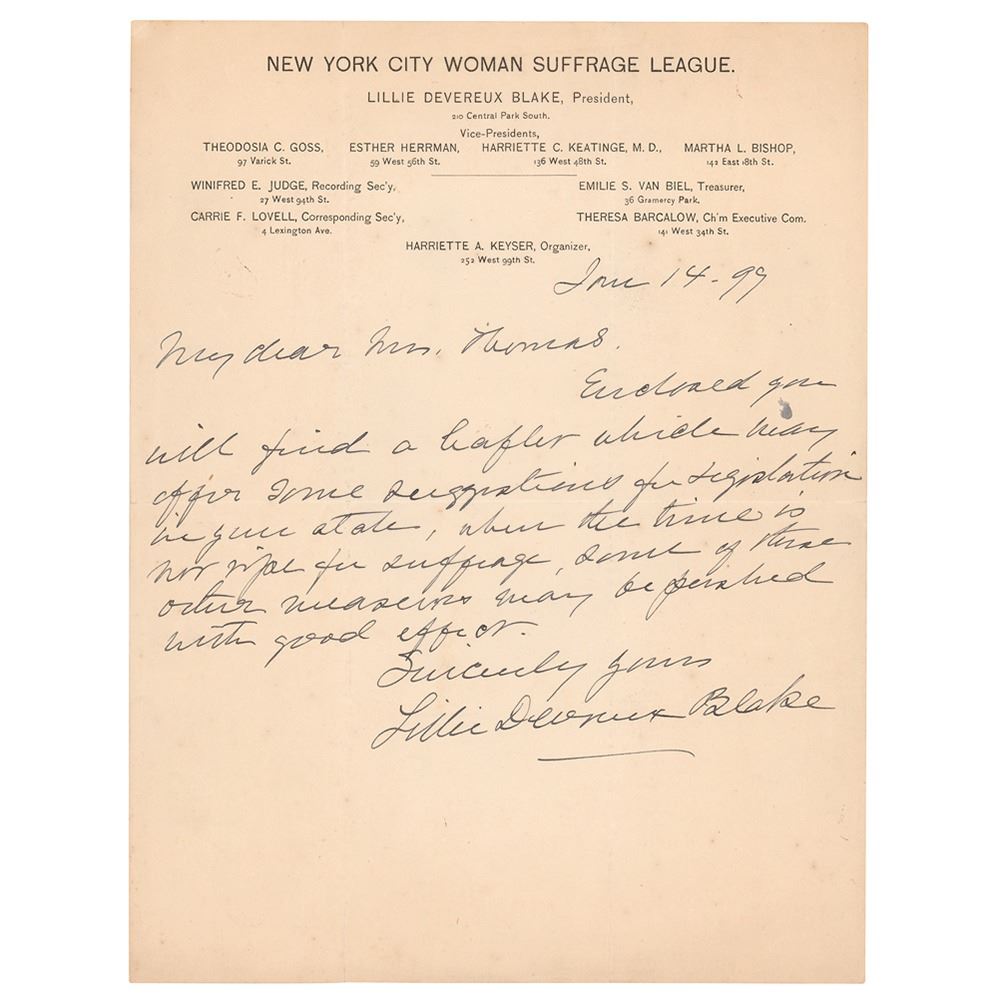 NEW YORK CITY WOMAN SUFFRAGE LEAGUE.
LILLIE DEVEREUX BLAKE, President,
210 Central Park South.
Vice-Presidents,
THEODOSIA C. GOSS, ESTHER HERRMAN, HARRIETTE C. KEATINGE, M. D., MARTHA L. BISHOP,
97 Varick St. 59 West 56th St. 136 West 48th St. 142 East 18th St.
WINIFRED E. JUDGE, Recording Sec'y, EMILIE S. VAN BIEL, Treasurer,
27 West 94th St. 36 Gramercy Park.
CARRIE F. LOVELL, Corresponding Sec'y, THERESA BARCALOW, Ch'm Executive Com.
4 Lexington Ave. 141 West 34th St.
HARRIETTE A. KEYSER, Organizer,
252 West 99th St.
14-99
My dear Mrs. Thomas.
Enclosed you
will find a leaflet which may
offer some suggestions for legislation
in your state, when the time is
not ripe for suffrage, some of these
other measures may be pushed
with good effect.
Sincerely yours
Lillie Devereux Blake